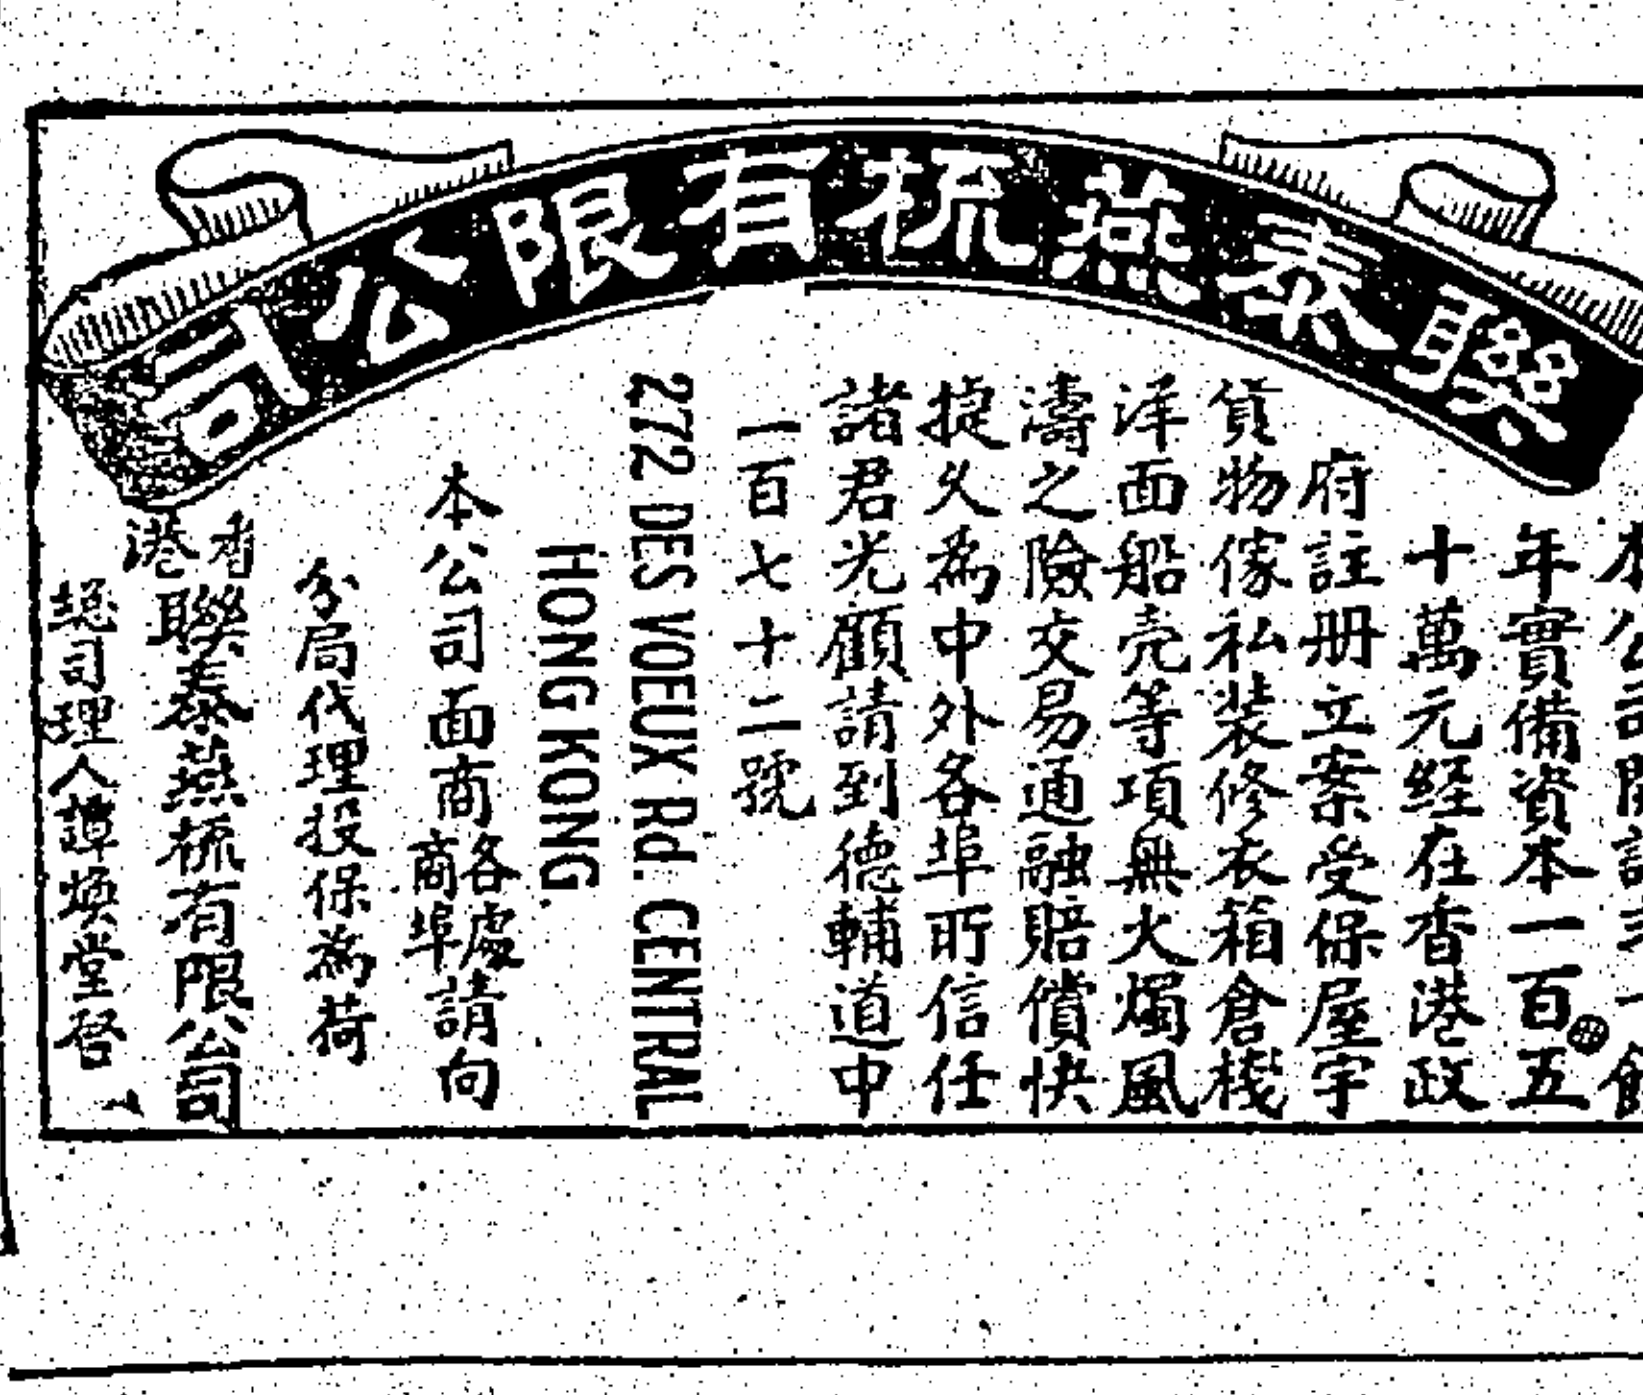 聯泰燕梳有限公司
本公司開設
年實備資本一百五
十萬元經在香港政
府註册立案受保屋宇
貨物傢私裝修衣箱倉棧
洋面船壳等項無火燭風
濤之險交易通融賠償快
捷久為中外各埠所信任
諸君光顧請到德輔道中
一百七十二號
272 DES VOEUX Rd. CENTRAL
HONG KONG.
本公司面商各處商埠請向
分局代理投保為荷
香港聯泰燕梳有限公司
總司理人譚煥堂啓